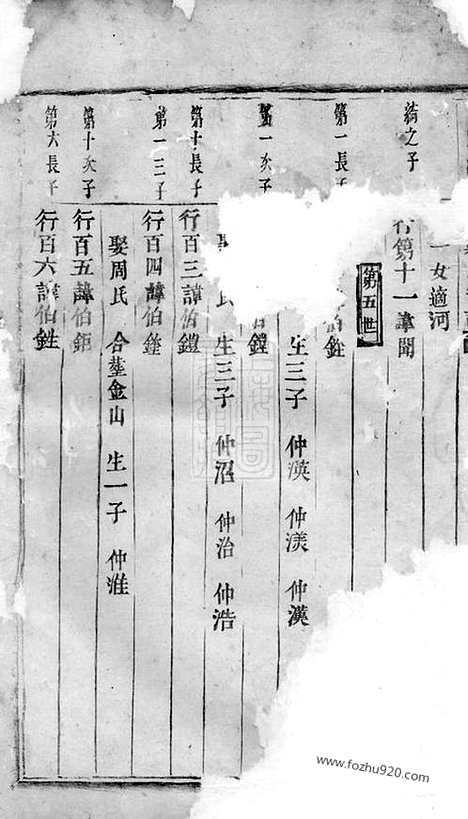 綺之子
一女適河
行第十一諱聞
第五世
第一長子
生三子 仲渶 仲渼 仲漢
第一次子
伯鏜
氏 生三子 仲沼 仲治 仲浩
第十長子
行百三諱伯鎧
第一三子
行百四諱伯鋒
娶周氏 合塟金山 生一子 仲淮
第十次子
行百五諱伯鉅
第六長子
行百六諱伯鉎
www.fozhu920.com